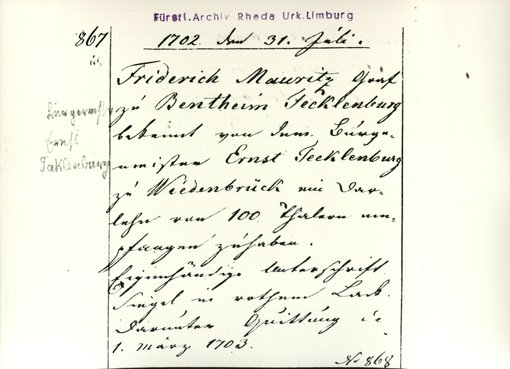 Fürstl. Archiv Rheda Urk. Limburg
867
1702. den 31. Juli.
Friderich Mauritz Graf
zu Bentheim Tecklenburg
bekennt von dem Bürge-
meister Ernst Tecklenburg
zu Wiedenbrück ein Dar-
lehn von 100 Thalern em-
pfangen zu haben.
Eigenhändige Unterschrift
Siegel in rothem Lack.
Darunter Quittung
1. März 1703.
Ernst
Taklenburg
No 868